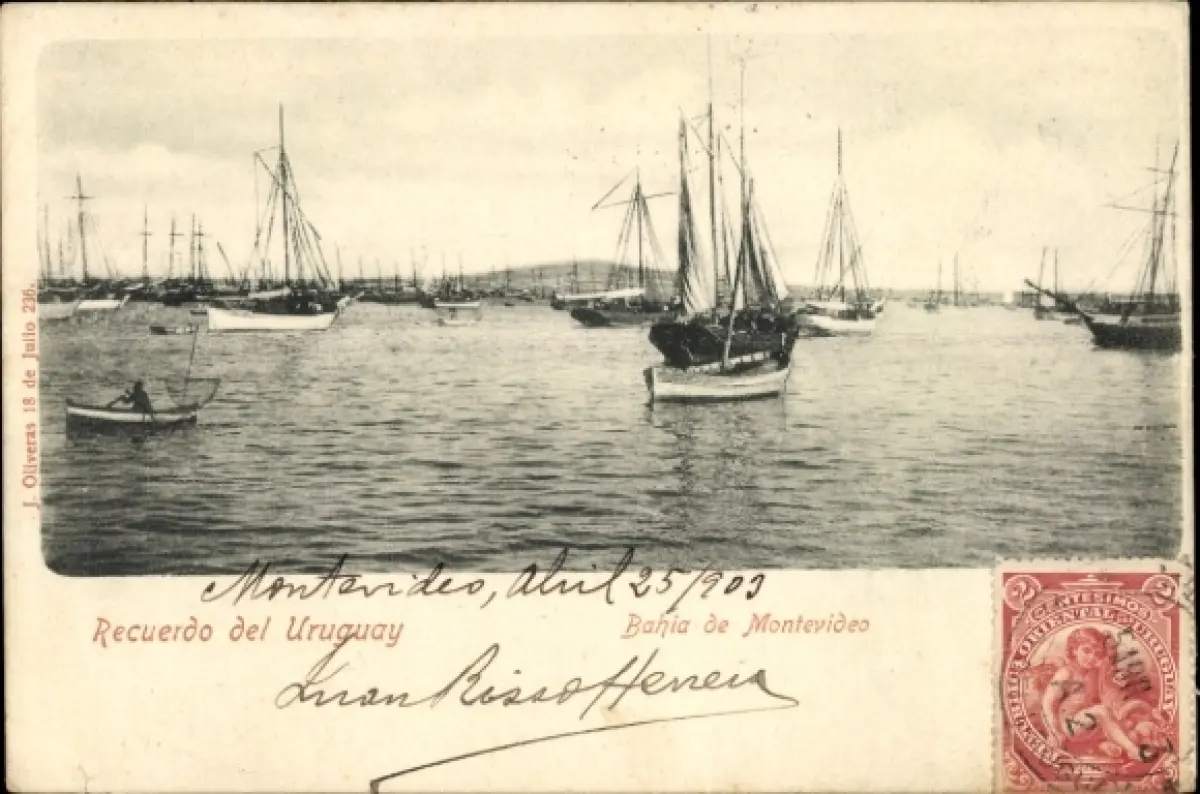 J. Oliveras 18 de Julio 236.
Montevideo, Abril 25/903
Recuerdo del Uruguay
Bahía de Montevideo
Juan Risso Herrera
2 2
CENTESIMOS
ORIENTAL DEL URUGUAY